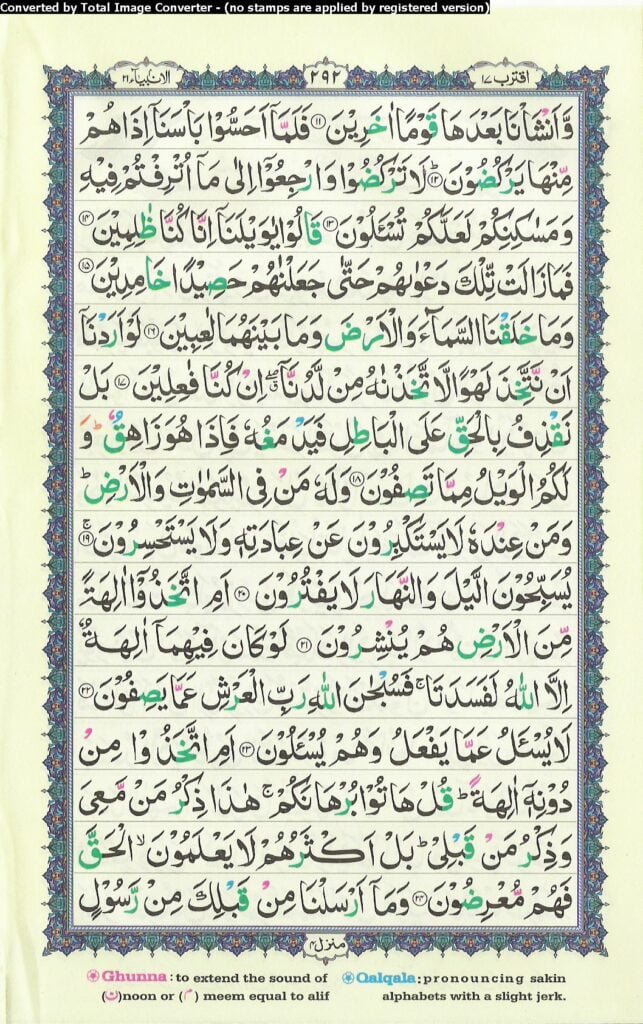 Converted by Total Image Converter - (no stamps are applied by registered version)
اقترب ١٧ ٢٩٢ الانبیآء ٢١
وَّاَنۡشَاۡنَا بَعۡدَهَا قَوۡمًا اٰخَرِیۡنَ ﴿١١﴾ فَلَمَّاۤ اَحَسُّوۡا بَاۡسَنَاۤ اِذَا هُمۡ
مِّنۡهَا یَرۡكُضُوۡنَ ؕ﴿١٢﴾ لَا تَرۡكُضُوۡا وَارۡجِعُوۡۤا اِلٰی مَاۤ اُتۡرِفۡتُمۡ فِیۡهِ
وَمَسٰكِنِكُمۡ لَعَلَّكُمۡ تُسۡـَٔلُوۡنَ ﴿١٣﴾ قَالُوۡا یٰوَیۡلَنَاۤ اِنَّا كُنَّا ظٰلِمِیۡنَ ﴿١٤﴾
فَمَا زَالَتۡ تِّلۡكَ دَعۡوٰىهُمۡ حَتّٰی جَعَلۡنٰهُمۡ حَصِیۡدًا خَامِدِیۡنَ ﴿١٥﴾
وَمَا خَلَقۡنَا السَّمَآءَ وَالۡاَرۡضَ وَمَا بَیۡنَهُمَا لٰعِبِیۡنَ ﴿١٦﴾ لَوۡ اَرَدۡنَاۤ
اَنۡ نَّتَّخِذَ لَهۡوًا لَّاتَّخَذۡنٰهُ مِنۡ لَّدُنَّاۤ ۖۗ اِنۡ كُنَّا فٰعِلِیۡنَ ﴿١٧﴾ بَلۡ
نَقۡذِفُ بِالۡحَقِّ عَلَی الۡبَاطِلِ فَیَدۡمَغُهٗ فَاِذَا هُوَ زَاهِقٌ ؕ وَ
لَكُمُ الۡوَیۡلُ مِمَّا تَصِفُوۡنَ ﴿١٨﴾ وَلَهٗ مَنۡ فِی السَّمٰوٰتِ وَالۡاَرۡضِ ؕ
وَمَنۡ عِنۡدَهٗ لَا یَسۡتَكۡبِرُوۡنَ عَنۡ عِبَادَتِهٖ وَلَا یَسۡتَحۡسِرُوۡنَ ۚ﴿١٩﴾
یُسَبِّحُوۡنَ الَّیۡلَ وَالنَّهَارَ لَا یَفۡتُرُوۡنَ ﴿٢٠﴾ اَمِ اتَّخَذُوۡۤا اٰلِهَةً
مِّنَ الۡاَرۡضِ هُمۡ یُنۡشِرُوۡنَ ﴿٢١﴾ لَوۡ كَانَ فِیۡهِمَاۤ اٰلِهَةٌ
اِلَّا اللّٰهُ لَفَسَدَتَا ۚ فَسُبۡحٰنَ اللّٰهِ رَبِّ الۡعَرۡشِ عَمَّا یَصِفُوۡنَ ﴿٢٢﴾
لَا یُسۡـَٔلُ عَمَّا یَفۡعَلُ وَهُمۡ یُسۡـَٔلُوۡنَ ﴿٢٣﴾ اَمِ اتَّخَذُوۡا مِنۡ
دُوۡنِهٖۤ اٰلِهَةً ؕ قُلۡ هَاتُوۡا بُرۡهَانَكُمۡ ۚ هٰذَا ذِكۡرُ مَنۡ مَّعِیَ
وَذِكۡرُ مَنۡ قَبۡلِیۡ ؕ بَلۡ اَكۡثَرُهُمۡ لَا یَعۡلَمُوۡنَ ۙ الۡحَقَّ
فَهُمۡ مُّعۡرِضُوۡنَ ﴿٢٤﴾ وَمَاۤ اَرۡسَلۡنَا مِنۡ قَبۡلِكَ مِنۡ رَّسُوۡلٍ
منزل ٤
Ghunna : to extend the sound of (ن)noon or (م) meem equal to alif
Qalqala : pronouncing sakin alphabets with a slight jerk.